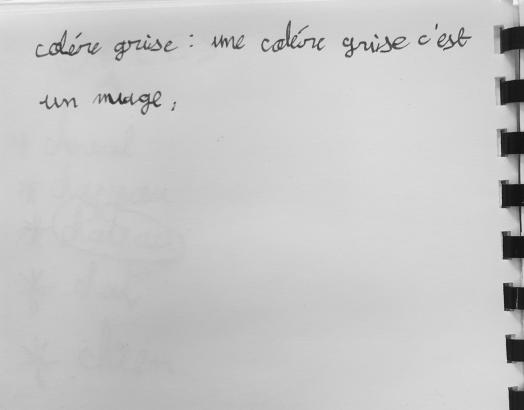 colére grise : une colére grise c'est
un nuage,